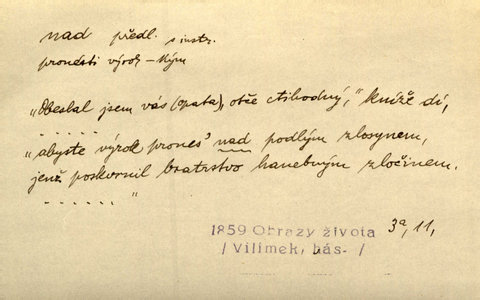 nad předl. s instr.
pronésti výrok – kým
„Obeslal jsem vás (opata), otče ctihodný,“ kníže dí,
. . . . . .
„abyste výrok prones' nad podlým zlosynem,
jenž poskvrnil bratrstvo hanebným zločinem.
. . . . . “
1859 Obrazy života 3a, 11,
/ Vilímek, bás- /